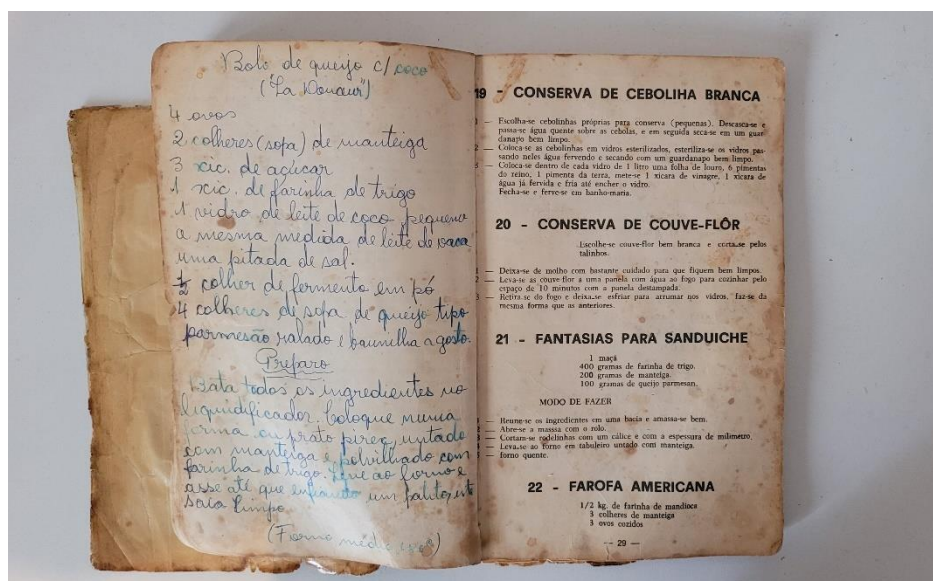 Bolo de queijo c/ coco
("La Douceur")
4 ovos
2 colheres (sopa) de manteiga
3 xic. de açúcar
1 xic. de farinha de trigo
1 vidro de leite de coco pequeno
a mesma medida de leite de vaca
uma pitada de sal.
½ colher de fermento em pó
4 colheres de sopa de queijo tipo
parmesão ralado e baunilha a gosto.
Preparo
Bata todos os ingredientes no
liquidificador. Coloque numa
forma ou prato pirex, untado
com manteiga e polvilhado com
farinha de trigo. Leve ao forno e
asse até que enfiando um palito, este
saia limpo.
(Forno médio
19 - CONSERVA DE CEBOLIHA BRANCA
— Escolha-se cebolinhas próprias para conserva (pequenas). Descasca-se e
passa-se água quente sobre as cebolas, e em seguida seca-se em um guar
danapo bem limpo.
2 — Coloca-se as cebolinhas em vidros esterilizados, esteriliza-se os vidros pas-
sando neles água fervendo e secando com um guardanapo bem limpo.
3 — Coloca-se dentro de cada vidro de 1 litro uma folha de louro, 6 pimentas
do reino, 1 pimenta da terra, mete-se 1 xicara de vinagre, 1 xicara de
água já fervida e fria até encher o vidro.
Fecha-se e ferve-se em banho-maria.
20 - CONSERVA DE COUVE-FLÔR
Escolhe-se couve-flor bem branca e corta-se pelos
talinhos.
— Deixa-se de molho com bastante cuidado para que fiquem bem limpos.
2 — Leva-se as couve-flor a uma panela com água ao fogo para cozinhar pelo
espaço de 10 minutos com a panela destampada.
3 — Retira-se do fogo e deixa-se esfriar para arrumar nos vidros, faz-se da
mesma forma que as anteriores.
21 - FANTASIAS PARA SANDUICHE
1 maçã
400 gramas de farinha de trigo.
200 gramas de manteiga.
100 gramas de queijo parmesan.
MODO DE FAZER
— Reune-se os ingredientes em uma bacia e amassa-se bem.
— Abre-se a masssa com o rolo.
— Cortam-se rodelinhas com um cálice e com a espessura de milimetro.
— Leva-se ao forno em tabuleiro untado com manteiga.
— forno quente.
22 - FAROFA AMERICANA
1/2 kg. de farinha de mandioca
3 colheres de manteiga
3 ovos cozidos
— 29 —